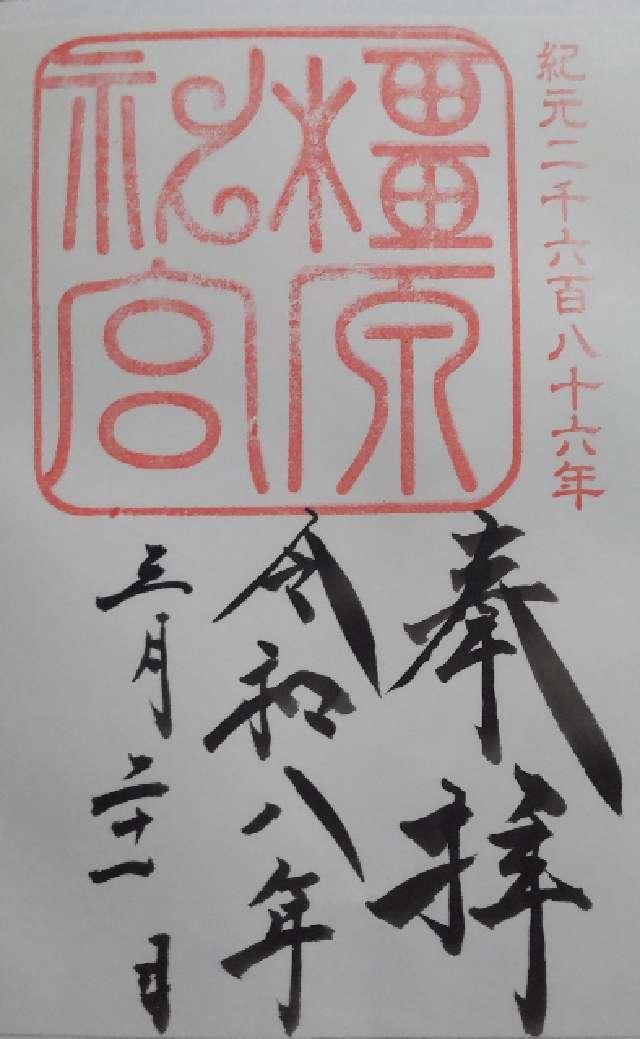 紀元二千六百八十六年
橿原
神宮
奉拝
令和八年
三月二十一日